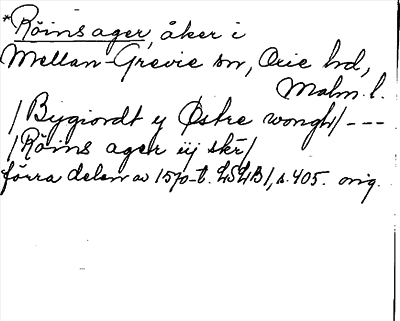 *Röins ager, åker i
Mellan-Grevie sn, Oxie hd,
Malm. l.
/Bygiordt y Østre wongh/ ---
/Röins ager iij skr/
förra delen av 1570-t. LSLB1, s. 405. orig.